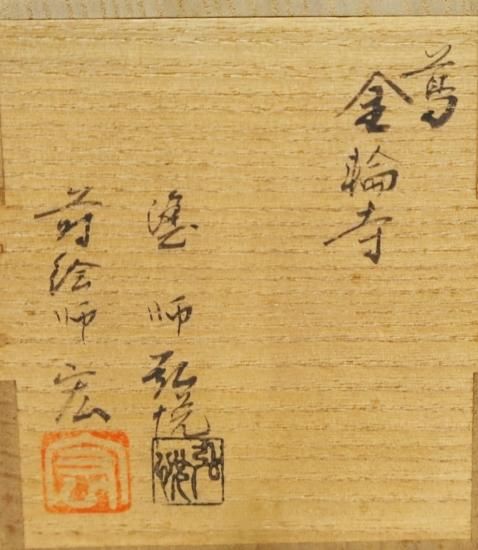 蔦
金輪寺
塗師 弘悦
蒔絵師 宏